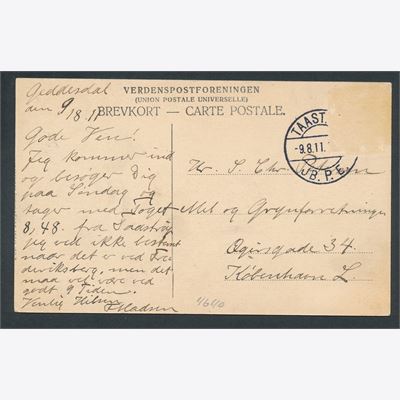 Geddesdal
den 9/8.11
VERDENSPOSTFORENINGEN
(UNION POSTALE UNIVERSELLE)
BREVKORT — CARTE POSTALE.
Gode Ven!
Jeg kommer ind
og besøger Dig
paa Søndag og
tager med Toget
8,48. fra Taastrup
jeg ved ikke bestemt
naar det er ved Fre
deriksberg, men det
maa vel være ved
godt 9 Tiden.
Venlig Hilsen
Madsen
TAAST.
-9.8.11.
JB.P.E.
Hr. S. Chr.
Mel og Grynforretningen
Ogirsgade 34.
København L.
4640